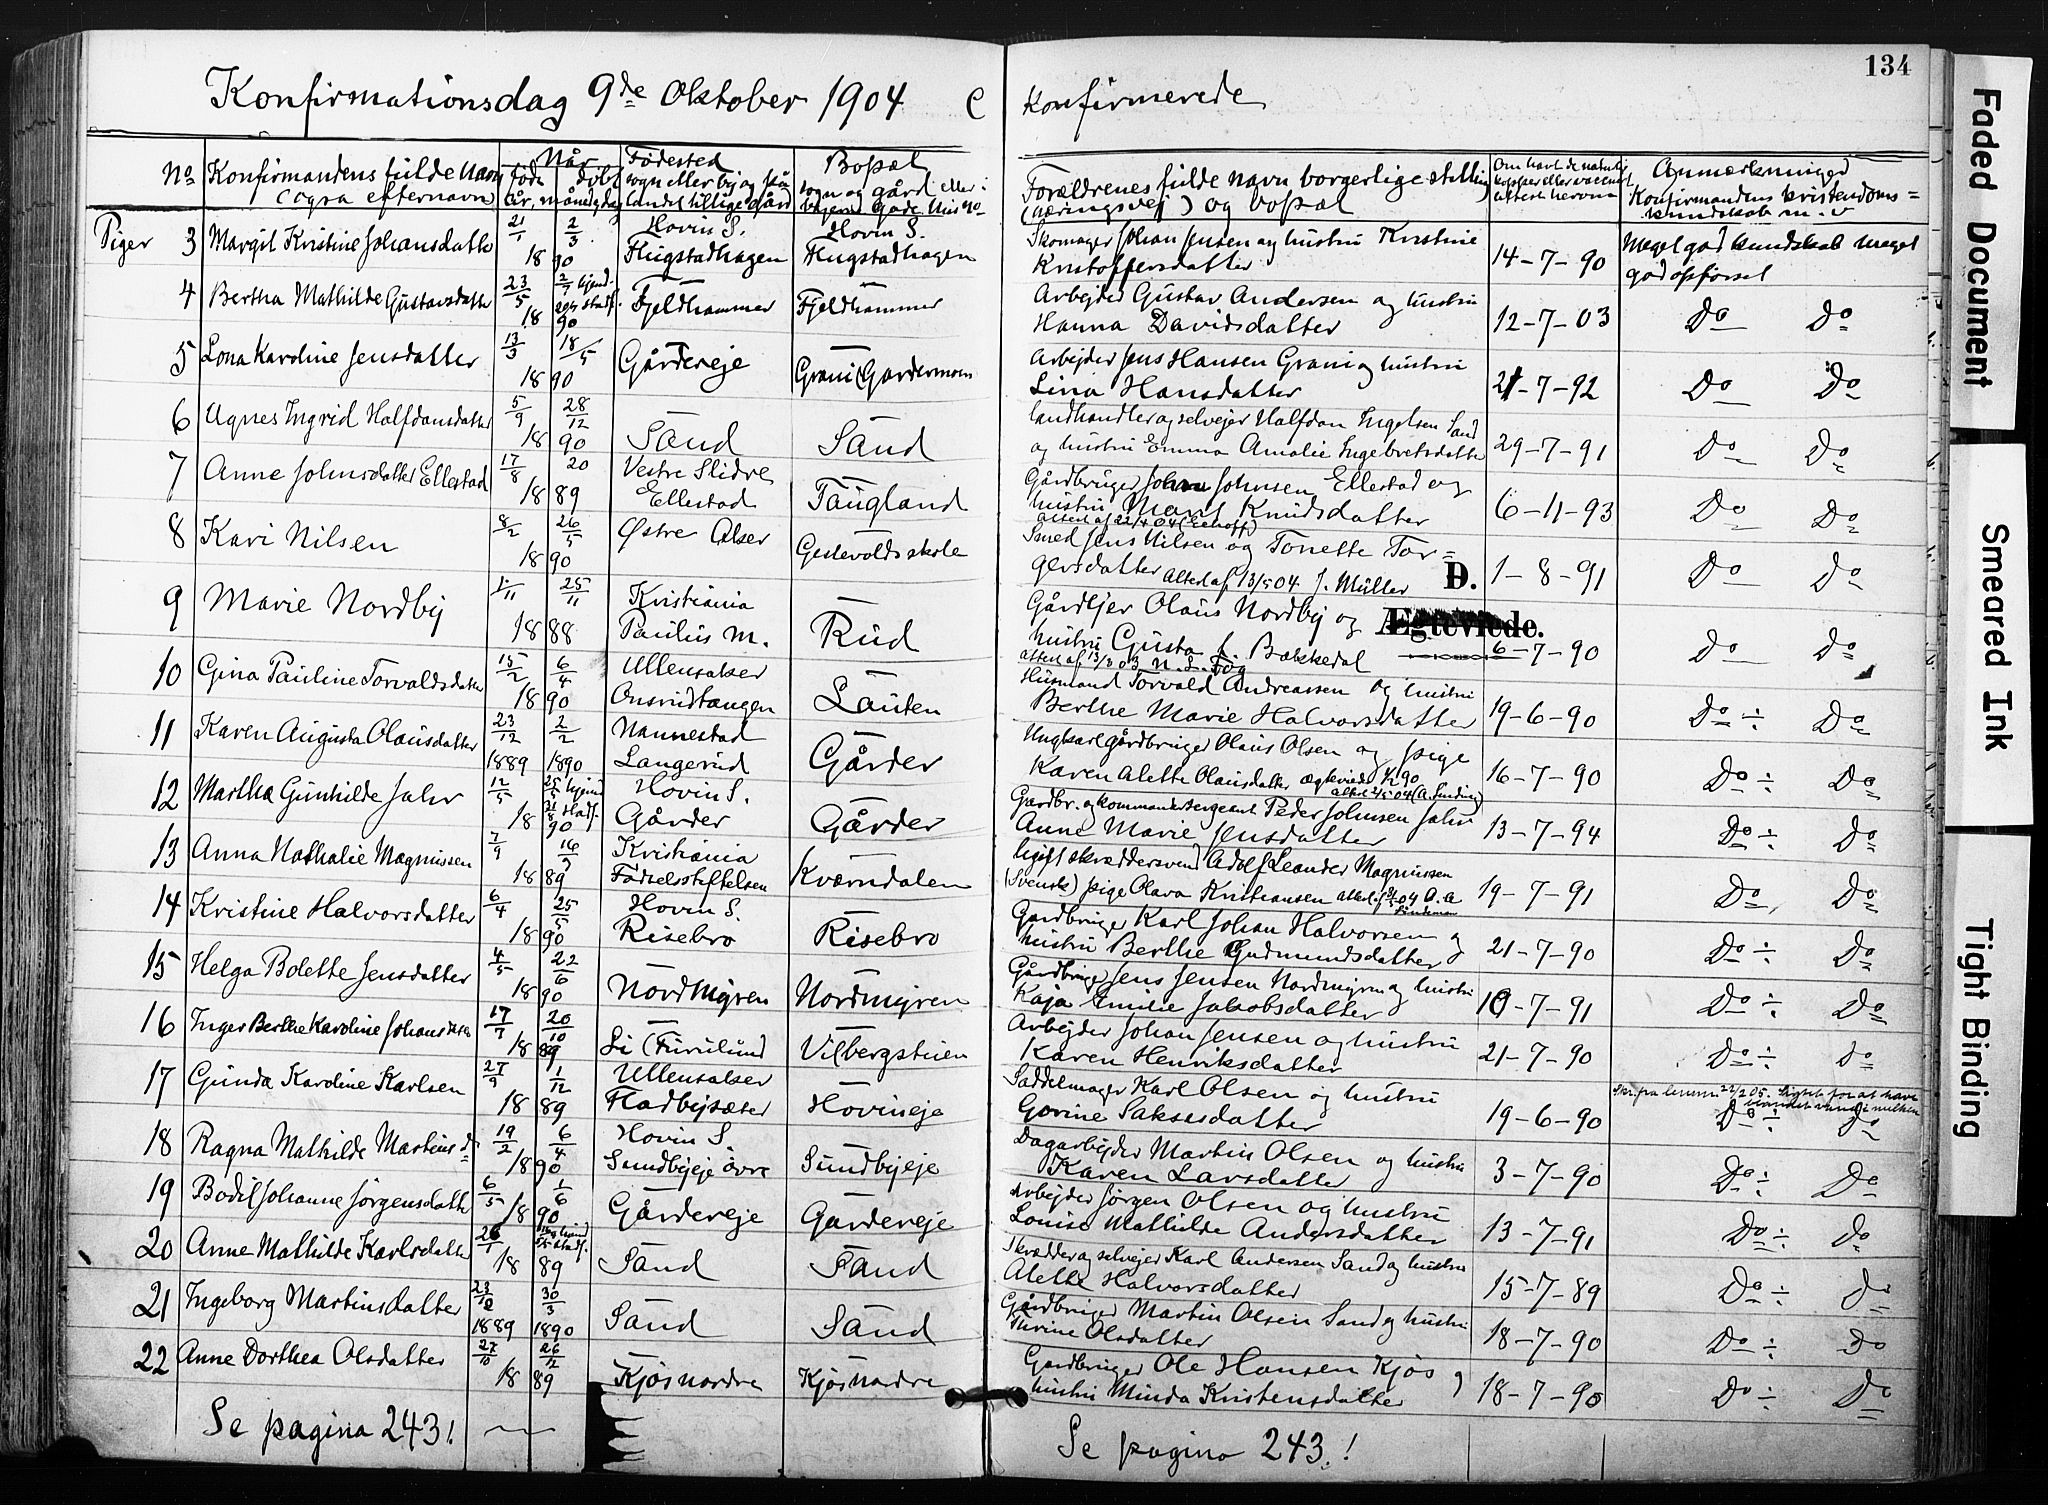 134
Konfirmationsdag 9de Oktober 1904 C Konfirmerede
No Konfirmandens fulde navn (ogsa efternavn) Når født døbt år, måned, dag Fødested sogn eller by og på landet tillige gård Bopæl sogn og gård eller i byerne gade hus no
Forældrenes fulde navn borgerlige stilling (næringsvej) og bopæl
Anmærkninger Konfirmandens kristendomskundskab m. v
Piger 3 Margit Kristine Johansdatter 21/1 2/3 1890 Hovin S. Hugstadhagen Hovin S. Hugstadhagen
Skomager Johan Jensen og hustru Kristine Kristoffersdatter 14-7-90 Meget god kundskab meget god opførsel
4 Bertha Mathilde Gustavsdatter 23/5 1890 Fjeldhammer Fjeldhammer
Arbejder Gustav Andersen og hustru Hanna Davidsdatter 12-7-03 Do Do
5 Lona Karoline Jensdatter 13/3 18/5 1890 Gårdereje Grani (Gardermoen
Arbejder Jens Hansen Grani og hustru Lina Hansdatter 21-7-92 Do Do
6 Agnes Ingrid Halfdansdatter 5/9 28/12 1890 Sand Sand
Landhandler og selvejer Halfdan Ingelsen Sand og hustru Emma Amalie Ingebretsdatter 29-7-91 Do Do
7 Anne Johnsdatter Ellestad 17/8 20 1889 Vestre Slidre Ellestad Taugland
Gårdbruger John Johnsen Ellestad og hustru Marit Knudsdatter 6-11-93 Do Do
8 Kari Nilsen 8/2 26/5 1890 Østre Aker Gestevoldsskole
Attest af 22/4 04
Smed Jens Nilsen og Tonette Torgersdatter Attest af 13/5 04 J. Müller D. 1-8-91 Do Do
9 Marie Nordby 1/11 25/11 1888 Kristiania Paulus M. Rud
Gårdejer Olaus Nordby og Ægteviede.
hustru Gusta f. Bækkedal 6-7-90 Do Do
10 Gina Pauline Torvaldsdatter 15/2 6/4 1890 Ullensaker Onsrudtangen Lauten
Attest af 13/8 03
Husmand Torvald Andreassen og hustru Berthe Marie Halvorsdatter 19-6-90 Do ÷ Do
11 Karen Augusta Olausdatter 23/12 2/2 1889 1890 Nannestad Langerud Gårder
Ungkarl gårdbruger Olaus Olsen og pige Karen Alette Olausdatter 16-7-90 Do ÷ Do
12 Martha Gunhilde Jahr 12/5 1890 Hovin S. Gårder Gårder
Gardbr. og kommandersergeant Peder Johnsen Jahr Anne Marie Jensdatter 13-7-94 Do ÷ Do
13 Anna Nathalie Magnussen 7/9 1889 Kristiania Fødselsstiftelsen Kværndalen
Ugift skræddersvend Adolf Leander Magnussen (Svensk) pige Olava Kristiansen 19-7-91 Do Do
14 Kristine Halvorsdatter 6/4 25/5 1890 Hovin S. Risebro Risebro
Gardbruger Karl Johan Halvorsen og hustru Berthe Gudmundsdatter 21-7-90 Do ÷ Do
15 Helga Bolette Jensdatter 4/5 22/6 1890 Nordmyren Nordmyren
Gårdbruger Jens Jensen Nordmyren og hustru Kaja Emilie Jakobsdatter 10-7-91 Do ÷ Do
16 Inger Berthe Karoline Johansdatter 17/7 20/10 1889 Li (Furulund) Vilbergstuen
Arbejder Johan Jensen og hustru Karen Henriksdatter 21-7-90 Do ÷ Do
17 Gunda Karoline Karlsen 27/9 1/12 1889 Ullensaker Fladbysæter Hovineje
Saddelmager Karl Olsen og hustru Gorine Saksesdatter 19-6-90 Do ÷ Do
18 Ragna Mathilde Martinsd 19/2 6/4 1890 Hovin S. Sundbyeje øvre Sundbyeje
Dagarbejder Martin Olsen og hustru Karen Larsdatter 3-7-90 Do ÷ Do
19 Bodil Johanne Jørgensdatter 6/5 1/6 1890 Gårdereje Gårdereje
Arbejder Jørgen Olsen og hustru Louise Mathilde Andersdatter 13-7-91 Do ÷ Do
20 Anne Mathilde Karlsdatter 26/1 1889 Sand Sand
Skrædder og selvejer Karl Andersen Sand og hustru Alette Halvorsdatter 15-7-89 Do ÷ Do
21 Ingeborg Martinsdatter 23/12 30/3 1889 1890 Sand Sand
Gårdbruger Martin Olsen Sand og hustru Thrine Olsdatter 18-7-90 Do ÷ Do
22 Anne Dorthea Olsdatter 27/10 26/12 1889 Kjøsnordre Kjøsnordre
Gardbruger Ole Hansen Kjøs hustru Minda Kristensdatter 18-7-90 Do ÷ Do
Se pagina 243! Se pagina 243.!
Faded Document
Smeared Ink
Tight Binding